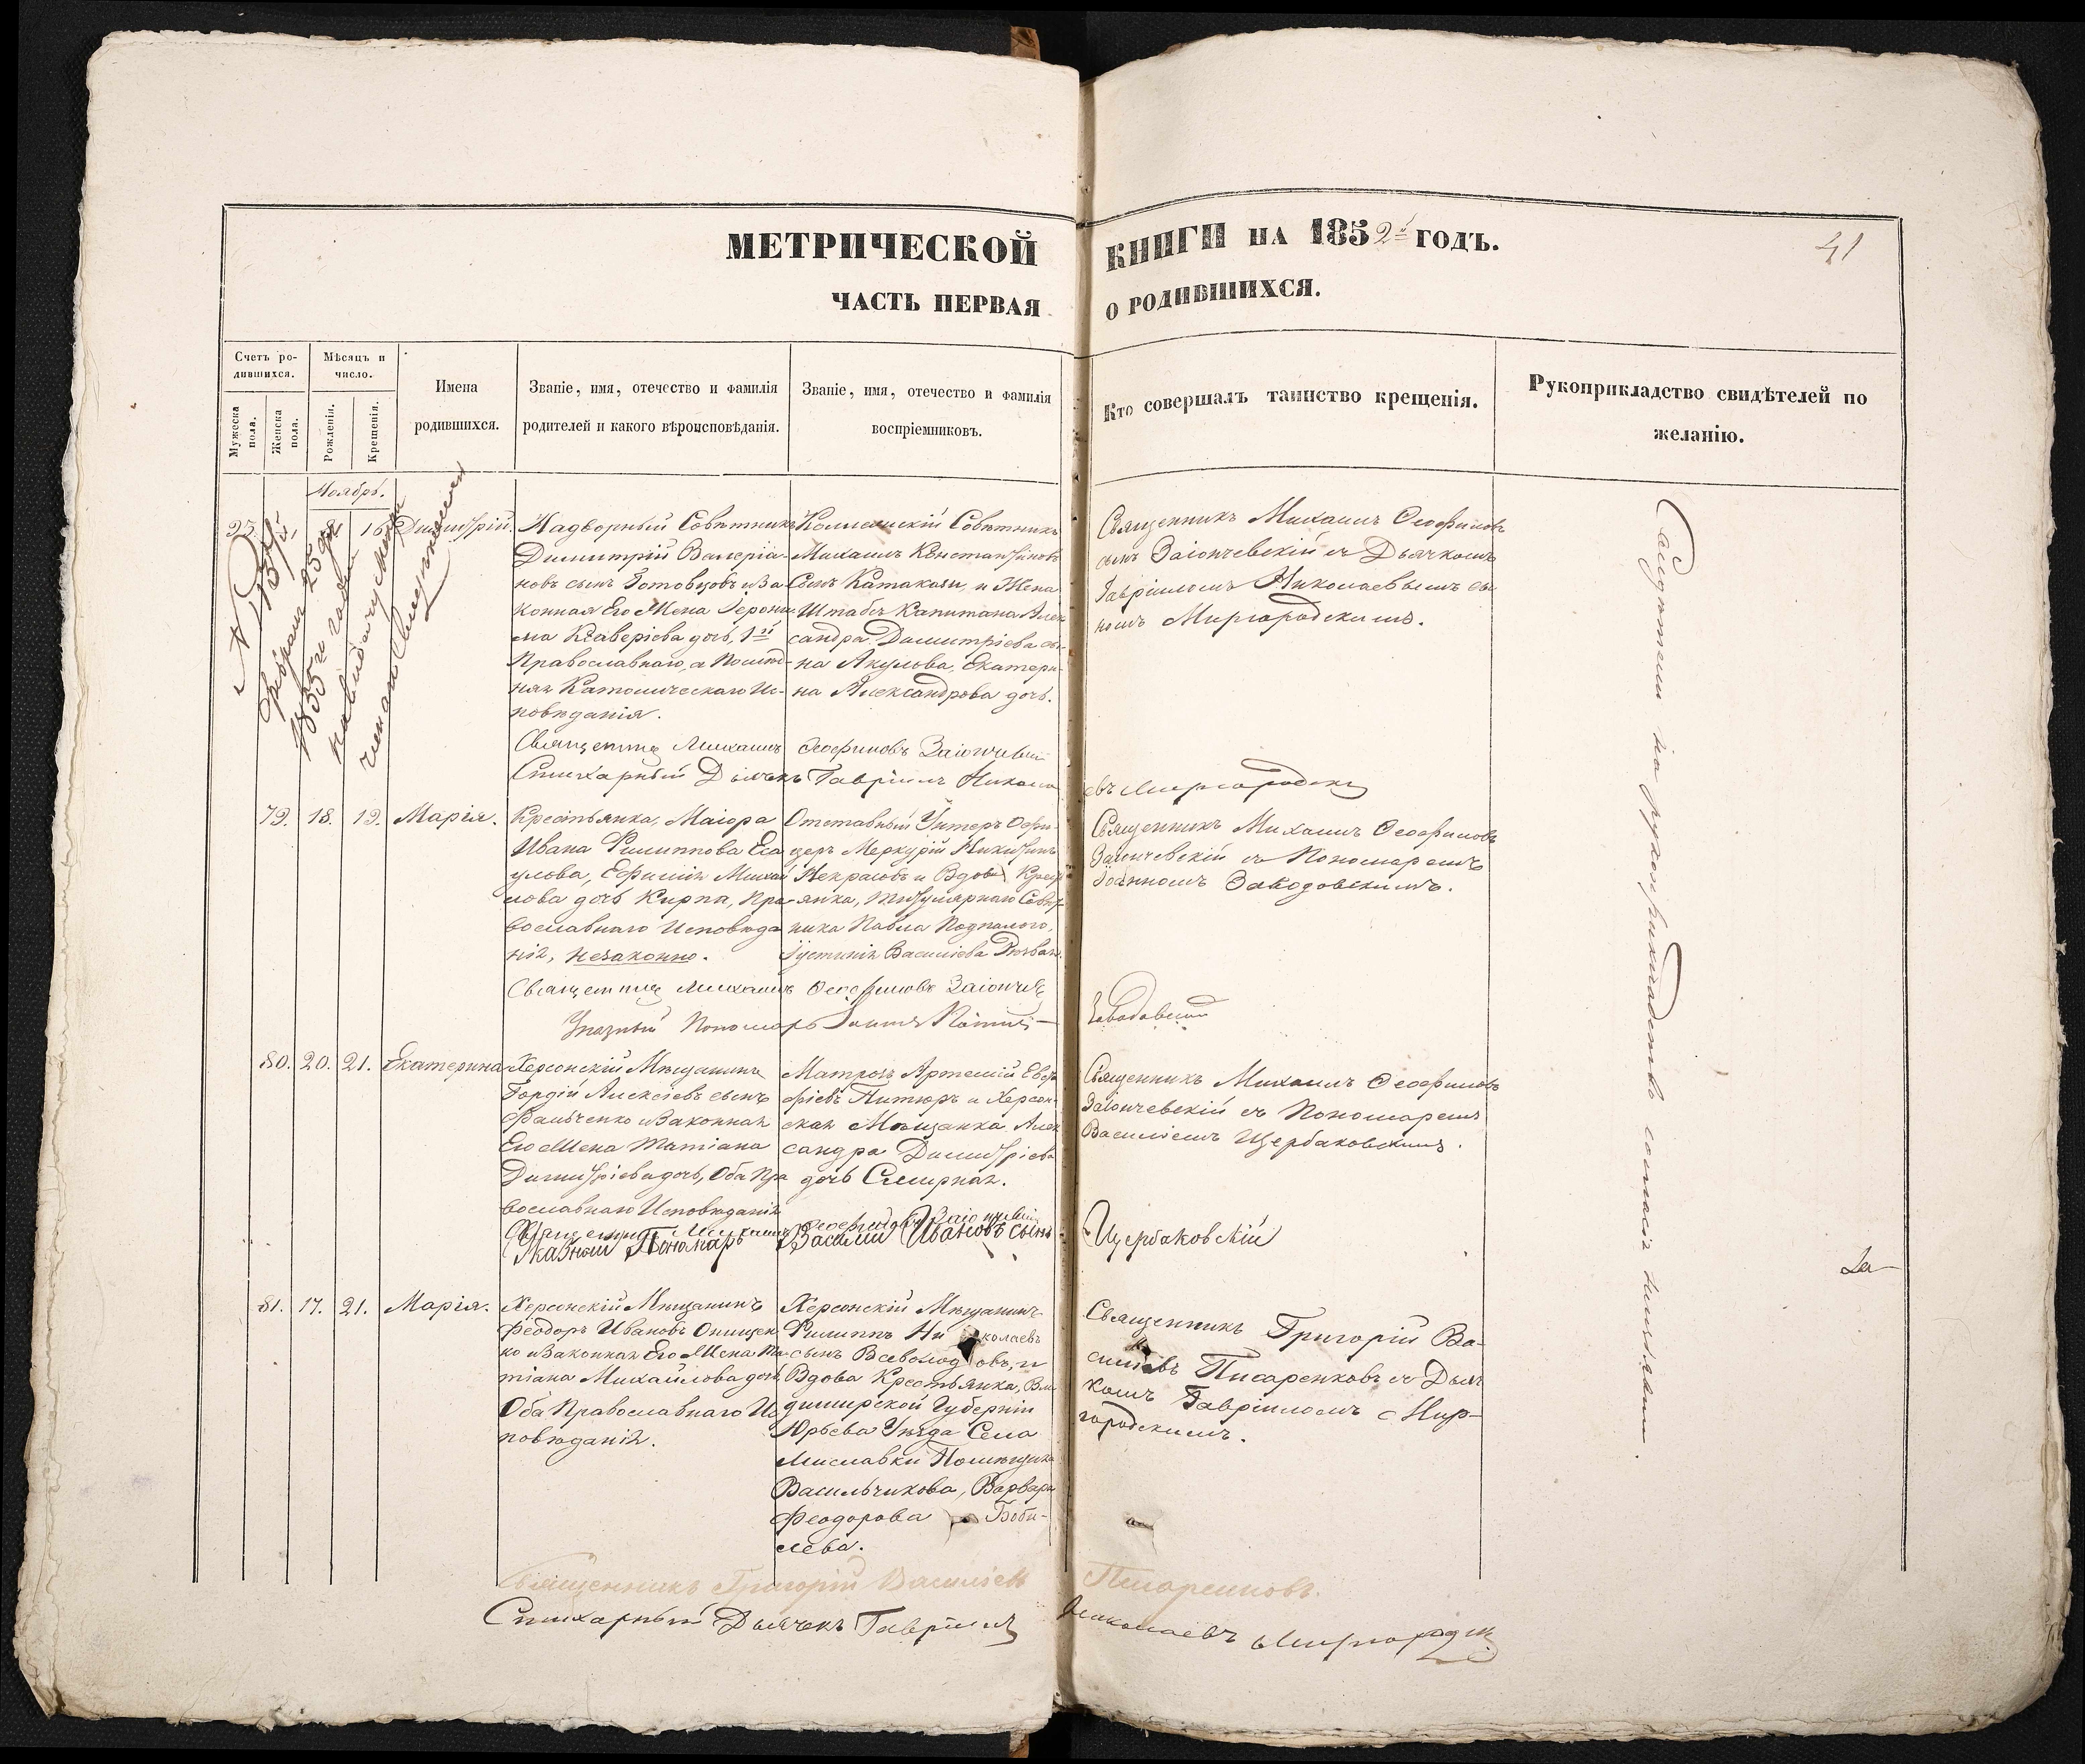 МЕТРИЧЕСКОЙ КНИГИ НА 1852й ГОДЪ.
41
ЧАСТЬ ПЕРВАЯ О РОДИВШИХСЯ.
Счетъ ро-
дившихся.
Мужеска пола.
Женска пола.
Мѣсяцъ и
число.
Рожденія.
Крещенія.
Имена
родившихся.
Званіе, имя, отечество и фамилія
родителей и какого вѣроисповѣданія.
Званіе, имя, отечество и фамилія
воспріемниковъ.
Кто совершалъ таинство крещенія.
Рукоприкладство свидѣтелей по
желанію.
Ноябрь.
16 Димитрій.
Надворный Совѣтникъ
Димитрій Валеріа-
новъ сынъ Готовцовъ и За
конная Его Жена Герони
ма Ксаверіева дочь, 1й
Православнаго, а Послѣд-
няя Католическаго Ис-
повѣданія.
Коллежскій Совѣтникъ
Михаилъ Константиновъ
Сынъ Катакази, и Жена
Штабсъ Капитана Алек
сандра Димитріева сы-
на Акулова, Екатери-
на Александрова дочь.
Священникъ Михаилъ Ѳеофиловъ
сынъ Заіончевскій съ Дьячкомъ
Гавріиломъ Николаевымъ сы
номъ Миргородскимъ.
Священникъ Михаилъ Ѳеофиловъ Заіончевскій
Стихарный Дьячекъ Гавріилъ Николаевъ Миргородскій
79. 18. 19. Марія.
Крестьянка, Маіора
Ивана Филиппова Еса
улова, Ефимія Михай
лова дочь Кирпа, Пра-
вославнаго Исповѣда
нія, незаконно.
Отставный Унтеръ Офи-
церъ Меркурій Никитинъ
Некрасовъ и Вдова Крест
янка, Титулярнаго Совѣт-
ника Павла Подпалого,
Іустинія Василіева
Священникъ Михаилъ Ѳеофиловъ
Заіончевскій съ Пономаремъ
Іоанномъ Заводовскимъ.
Священникъ Михаилъ Ѳеофиловъ Заіончев
Указный Пономарь
Заводовскій
80. 20. 21. Екатерина
Херсонскій Мѣщанинъ
Гордій Алексіевъ сынъ
Фальченко и Законная
Его Жена Татіана
Димитріева дочь, Оба Пра
вославнаго Исповѣданія
Матрозъ Артемій Евст
фіевъ Питюръ и Херсон-
ская Мѣщанка Алек
сандра Димитріева
дочь Смирная.
Священникъ Михаилъ Ѳеофиловъ
Заіончевскій съ Пономаремъ
Василіемъ Щербаковскимъ.
Священникъ Михаилъ Ѳеофиловъ Заіончевскій
Указный Пономарь Василій Ивановъ сынъ Щербаковскій
81. 17. 21. Марія.
Херсонскій Мѣщанинъ
Феодоръ Ивановъ Онищен
ко и Законная Его Жена Та
тіана Михайлова дочь,
Оба Православнаго Ис
повѣданія.
Херсонскій Мѣщанинъ
Филиппъ Николаевъ
сынъ Всеволодовъ, и
Вдова Крестьянка, Вла
димирской Губерніи
Юрьева Уѣзда Села
Миславки Помѣщика
Васильчикова, Варвара
Феодорова Боби-
лева.
Священникъ Григорій Ва-
силіевъ Писаренковъ съ Дьяч
комъ Гавріиломъ Мир-
городскимъ.
Священникъ Григорій Василіевъ Писаренковъ.
Стихарный Дьячекъ Гавріилъ Николаевъ Миргородскій